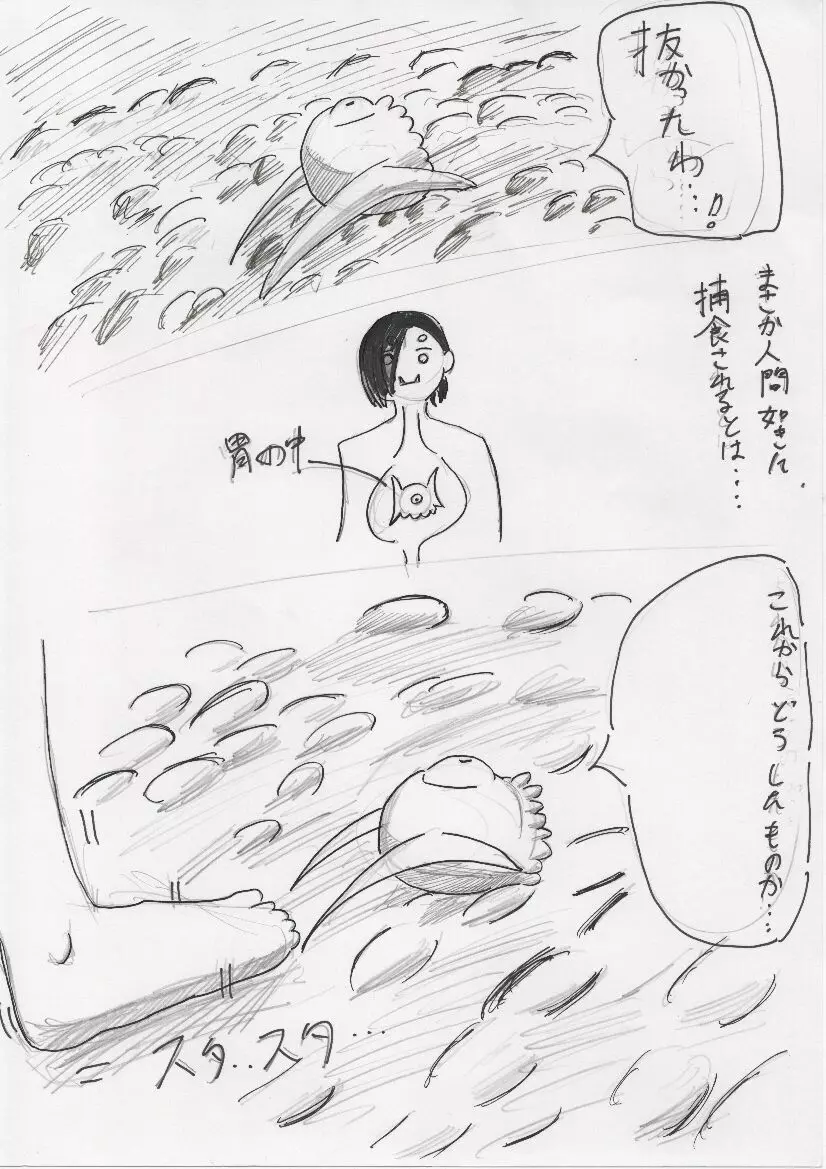 抜かったわ…!!
まさか人間如きに
捕食されるとは‥‥
胃の中
これからどうしたものか…
スタ‥スタ…